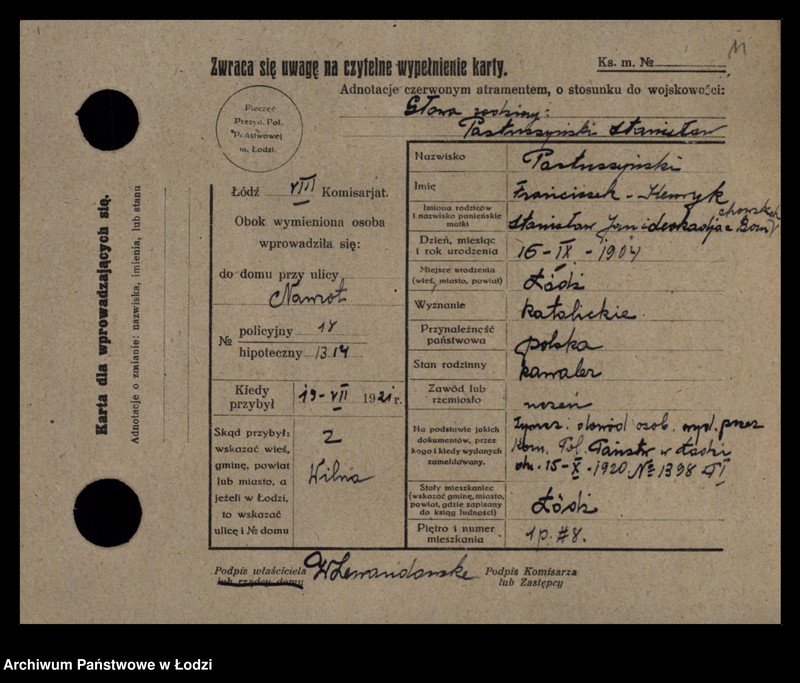 11
Zwraca się uwagę na czytelne wypełnienie karty.
Ks. m. №
Adnotacje czerwonym atramentem, o stosunku do wojskowości:
Głowa rodziny:
Pastuszyński Stanisław
Pieczęć
Prezyd. Pol.
Państwowej
m. Łodzi.
Łódź VIII Komisarjat.
Obok wymieniona osoba
wprowadziła się:
do domu przy ulicy
Nawrot
№ policyjny 18
hipoteczny 1314
Kiedy przybył 19-VII 1921 r.
Skąd przybył:
wskazać wieś,
gminę, powiat
lub miasto, a
jeżeli w Łodzi,
to wskazać
ulicę i № domu
z
Wilna
Nazwisko Pastuszyński
Imię Franciszek-Henryk
Imiona rodziców
i nazwisko panieńskie
matki
Stanisław Jan i Leokadja z
Dzień, miesiąc
i rok urodzenia
15-IX-1904
Miejsce urodzenia
(wieś, miasto, powiat)
Łódź
Wyznanie katolickie
Przynależność
państwowa
polska
Stan rodzinny kawaler
Zawód lub
rzemiosło
uczeń
Na podstawie jakich
dokumentów, przez
kogo i kiedy wydanych
zameldowany.
dowód osob. wyd. przez
Kom. Pol. Państw w Łodzi
dn. 15-X-1920 № 1398
Stały mieszkaniec
(wskazać gminę, miasto,
powiat, gdzie zapisany
do ksiąg ludności)
Łódź
Piętro i numer
mieszkania
1 p. #8.
Podpis właściciela
lub rządcy domu
WLewandowski
Podpis Komisarza
lub Zastępcy
Karta dla wprowadzających się.
Adnotacje o zmianie: nazwiska, imienia, lub stanu
Archiwum Państwowe w Łodzi